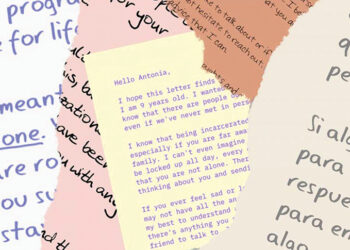 progra
e for life
meant
one. W
are ro
ou su
stan
for your
us, bu
ization
have been
u with any
d th
Hello Antonia,
I hope this letter finds
I am 9 years old. I wanted
know that there are people
even if we've never met in pers
I know that being incarcerated
especially if you are far awa
family. I can't even imagine
be locked up all day, every
that you are not alone. There
thinking about you and sendi
If you ever feel sad or
may not have all the an
my best to understand
there's anything you
friend to talk to
to talk about or if
not hesitate to reach out.
advice that I can.
ughts and
q
pe
Si alg
para
respue
para en
algo